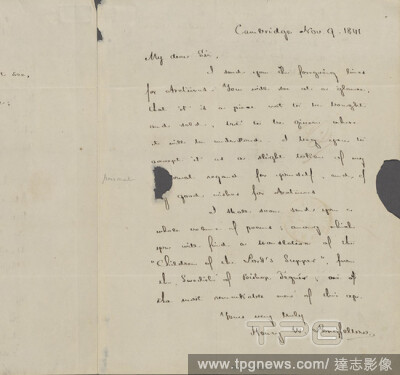 Cambridge Nov 9. 1841
My dear Sir,
I send you the foregoing lines
for Arcturus. You will see at a glance,
that it is a piece not to be bought
and sold, but to be given where
it will be understood. I beg you to
accept it as a slight token of my
regard for yourself, and of
good wishes for Arcturus.
I shall soon send you a
whole volume of poems; among which
you will find a translation of the
"Children of the Lord's Supper", from
the Swedish of Bishop Tégner; one of
the most remarkable men of this age.
Yours very truly
Henry W. Longfellow.
TPG
www.tpgnews.com/達志影像